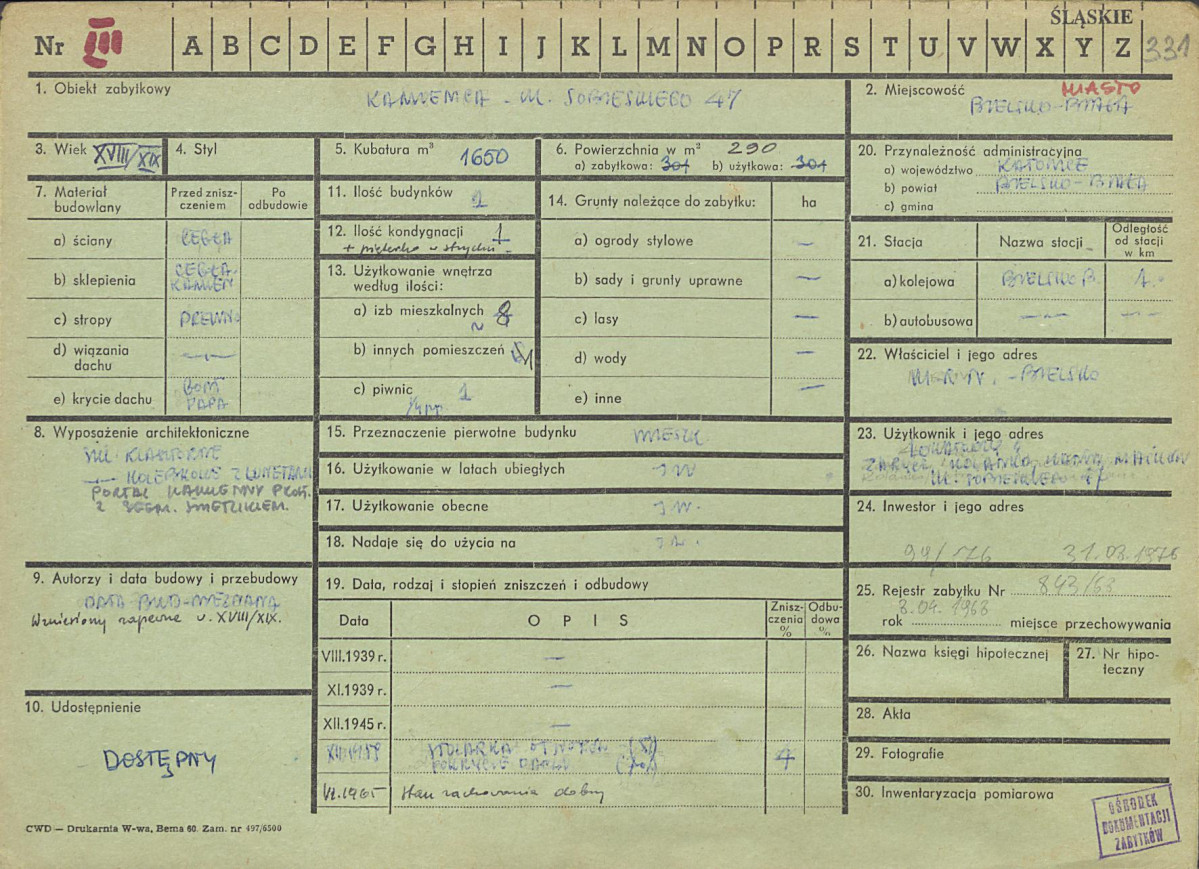 ŚLĄSKIE
Nr III A B C D E F G H I J K L M N O P R S T U V W X Y Z 331
1. Obiekt zabytkowy KAMIENICA - UL. SOBIESKIEGO 47
2. Miejscowość MIASTO
BIELSKO-BIAŁA
3. Wiek XVIII/XIX
4. Styl
5. Kubatura m³ 1650
6. Powierzchnia w m² 290
a) zabytkowa: 301 b) użytkowa: 301
7. Materiał budowlany
Przed zniszczeniem
Po odbudowie
a) ściany CEGŁA
b) sklepienia CEGŁA
KAMIEŃ
c) stropy DREWNO
d) wiązania dachu —„—
e) krycie dachu GONT
PAPA
8. Wyposażenie architektoniczne
SKL. KLASZTORNE
—„— KOLEBKOWE Z LUNETAMI
PORTAL KAMIENNY PROST.
Z SEGM. ŚWIETLIKIEM.
9. Autorzy i data budowy i przebudowy
DATA BUD. NIEZNANA
Wzniesiony zapewne w XVIII/XIX.
10. Udostępnienie
DOSTĘPNY
11. Ilość budynków 1
12. Ilość kondygnacji 1
13. Użytkowanie wnętrza według ilości:
a) izb mieszkalnych 8
b) innych pomieszczeń
c) piwnic 1
14. Grunty należące do zabytku: ha
a) ogrody stylowe —
b) sady i grunty uprawne —
c) lasy —
d) wody —
e) inne —
15. Przeznaczenie pierwotne budynku MIESZK.
16. Użytkowanie w latach ubiegłych J.W.
17. Użytkowanie obecne J.W.
18. Nadaje się do użycia na J.W.
19. Data, rodzaj i stopień zniszczeń i odbudowy
Data OPIS Zniszczenia % Odbudowa %
VIII.1939 r. —
XI.1939 r. —
XII.1945 r. —
XII.1959 STOLARKA OTWOROW
POKRYCIE DACHU 4
VI.1965 Stan zachowania dobry
20. Przynależność administracyjna
a) województwo KATOWICE
b) powiat BIELSKO-BIAŁA
c) gmina
21. Stacja Nazwa stacji Odległość od stacji w km
a) kolejowa BIELSKO B. 1.
b) autobusowa —„— —„—
22. Właściciel i jego adres
BIELSKO
23. Użytkownik i jego adres
UL. SOBIESKIEGO
24. Inwestor i jego adres
31.03.1976
25. Rejestr zabytku Nr 843/68
rok 8.04.1968 miejsce przechowywania
26. Nazwa księgi hipotecznej
27. Nr hipoteczny
28. Akta
29. Fotografie
30. Inwentaryzacja pomiarowa
OŚRODEK
DOKUMENTACJI
ZABYTKÓW
CWD — Drukarnia W-wa, Bema 60. Zam. nr 497/6500